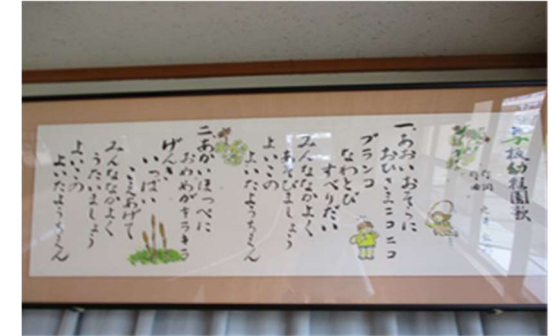 幼稚園歌
一、あおいおそらに
おひさまニコニコ
ブランコ
なわとび
すべりだい
みんななかよく
あそびましょう
よいこの
よいたようちえん
二、あかいほっぺに
おめめがキラキラ
げんき
いっぱい
こえあげて
みんななかよく
うたいましょう
よいこの
よいたようちえん